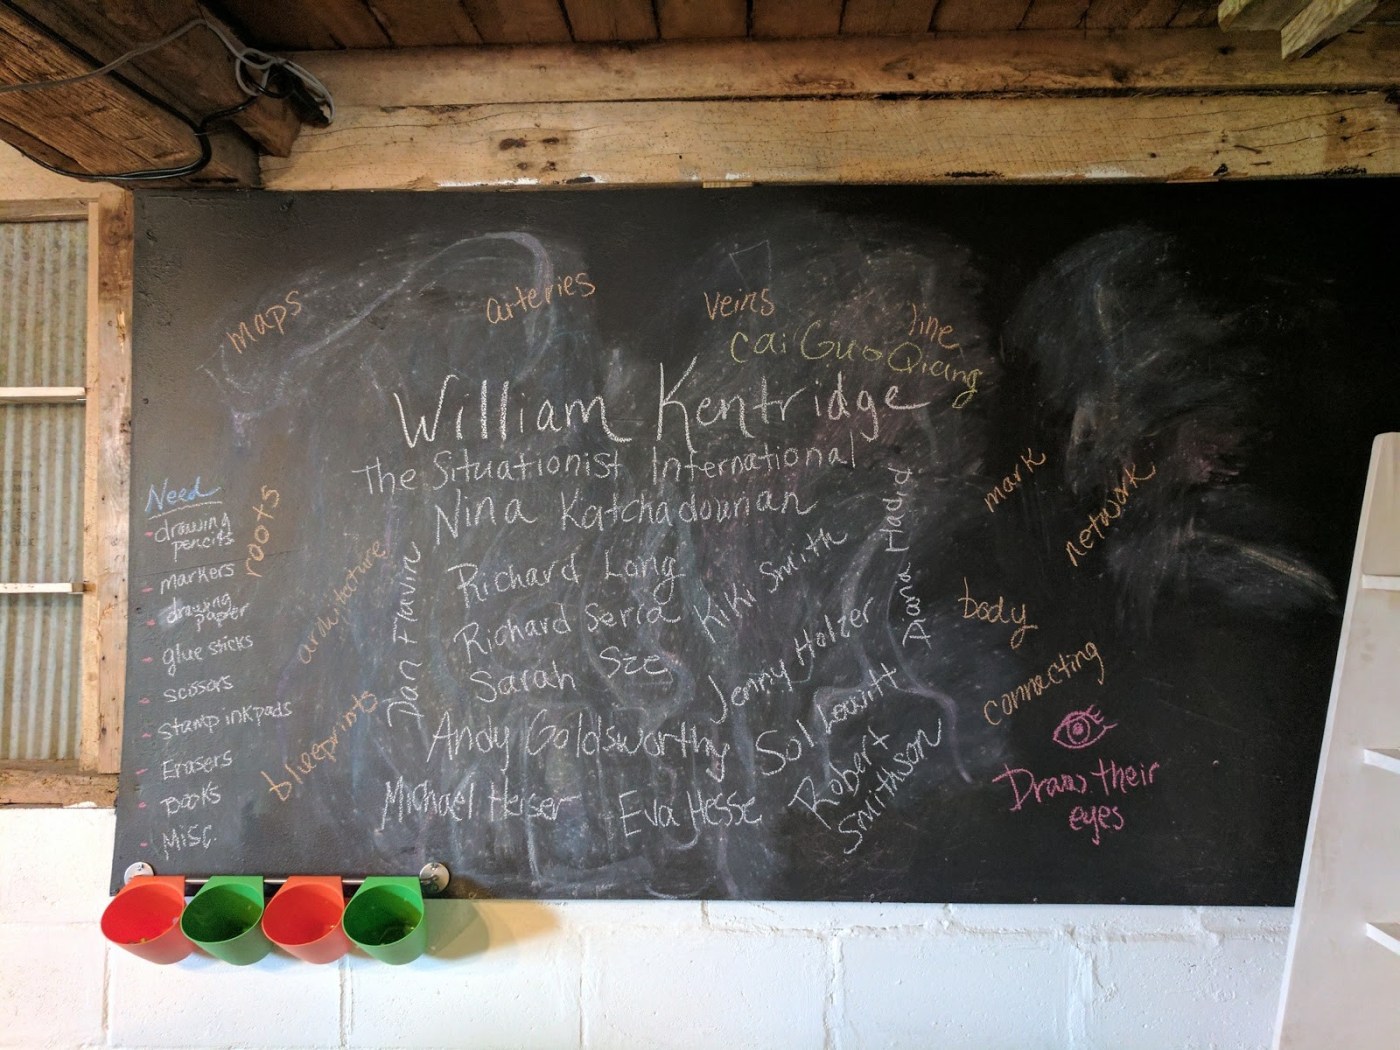 maps
arteries
veins
line
cai Guo Qiang
William Kentridge
The Situationist International
Nina Katchadourian
Richard Long
Kiki Smith
Diana Hadid
Richard Seria
Sarah Sze
Jenny Holzer
Dan Flavin
Andy Goldsworthy
Sol Lewitt
Michael Heiser
Eva Hesse
Robert
Smithson
Need
-drawing
pencils
- markers
- drawing
paper
- glue sticks
- scissors
- stamp inkpads
- Erasers
- Books
- Misc.
roots
blueprints
mark
network
body
connecting
Draw their
eyes